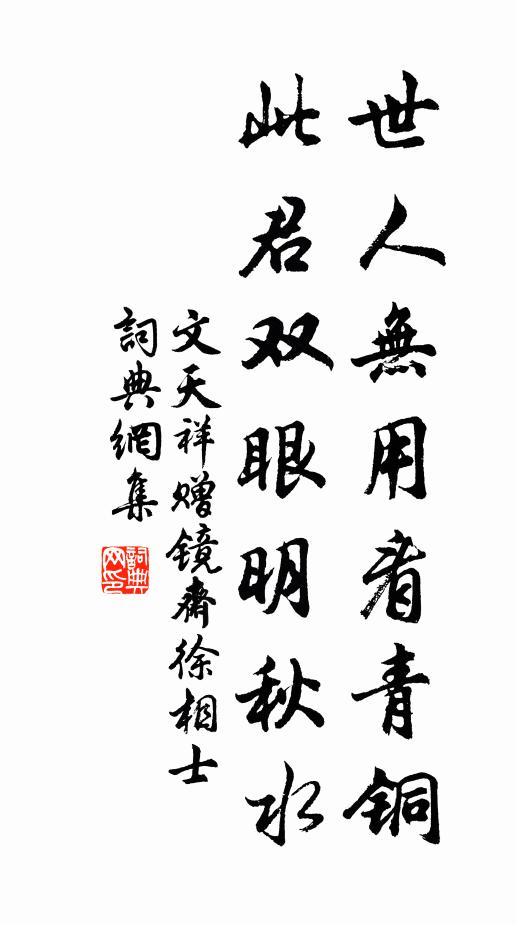 世人無用看青铜
此君双眼明秋水
文天祥赠镜齋徐相士
詞典網集
詞典网印